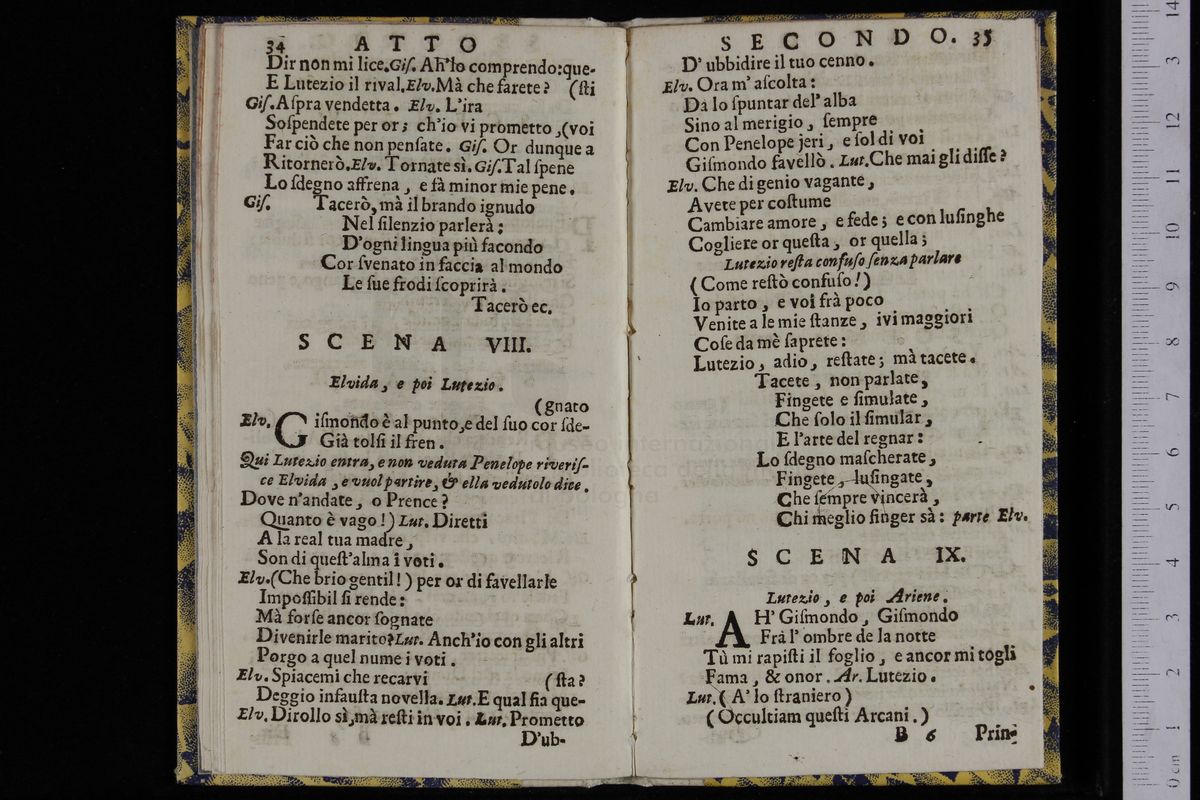 34 ATTO
Dir non mi lice.Giſ. Ah'lo comprendo:que-
E Lutezio il rival.Elv.Mà che farete? (ſti
Giſ.Aſpra vendetta. Elv. L'ira
Soſpendete per or; ch'io vi prometto,(voi
Far ciò che non penſate. Giſ. Or dunque a
Ritornerò.Elv. Tornate sì.Giſ.Tal ſpene
Lo ſdegno affrena, e fà minor mie pene.
Giſ. Tacerò, mà il brando ignudo
Nel ſilenzio parlerà;
D'ogni lingua più facondo
Cor ſvenato in faccia al mondo
Le ſue frodi ſcoprirà.
Tacerò ec.
SCENA VIII.
Elvida, e poi Lutezio.
(gnato
Elv. Giſmondo è al punto,e del ſuo cor ſde-
Già tolſi il fren.
Qui Lutezio entra, e non veduta Penelope riveriſ-
ce Elvida, e vuol partire, & ella vedutolo dice.
Dove n'andate, o Prence?
Quanto è vago!) Lut. Diretti
A la real tua madre,
Son di queſt'alma i voti.
Elv.(Che brio gentil!) per or di favellarle
Impoſſibil ſi rende:
Mà forſe ancor ſognate
Divenirle marito?Lut. Anch'io con gli altri
Porgo a quel nume i voti.
Elv. Spiacemi che recarvi (ſta?
Deggio infauſta novella. Lut.E qual fia que-
Elv. Dirollo sì,mà reſti in voi. Lut. Prometto
D'ub-
SECONDO. 35
D'ubbidire il tuo cenno.
Elv. Ora m'aſcolta:
Da lo ſpuntar del'alba
Sino al merigio, ſempre
Con Penelope jeri, e ſol di voi
Giſmondo favellò. Lut.Che mai gli diſſe?
Elv. Che di genio vagante,
Avete per coſtume
Cambiare amore, e fede; e con luſinghe
Cogliere or queſta, or quella;
Lutezio reſta confuſo ſenza parlare
(Come reſtò confuſo!)
Io parto, e voi frà poco
Venite a le mie ſtanze, ivi maggiori
Coſe da mè ſaprete:
Lutezio, adio, reſtate; mà tacete.
Tacete, non parlate,
Fingete e ſimulate,
Che ſolo il ſimular,
E l'arte del regnar:
Lo ſdegno maſcherate,
Fingete, luſingate,
Che ſempre vincerà,
Chi meglio finger sà: parte Elv.
SCENA IX.
Lutezio, e poi Ariene.
Lut. AH' Giſmondo, Giſmondo
Frà l'ombre de la notte
Tù mi rapiſti il foglio, e ancor mi togli
Fama, & onor. Ar. Lutezio.
Lut.(A' lo ſtraniero)
(Occultiam queſti Arcani.)
B 6 Prin-